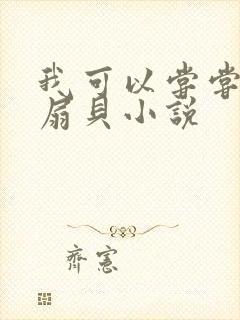 我可以常常
扇貝小說
齊憲